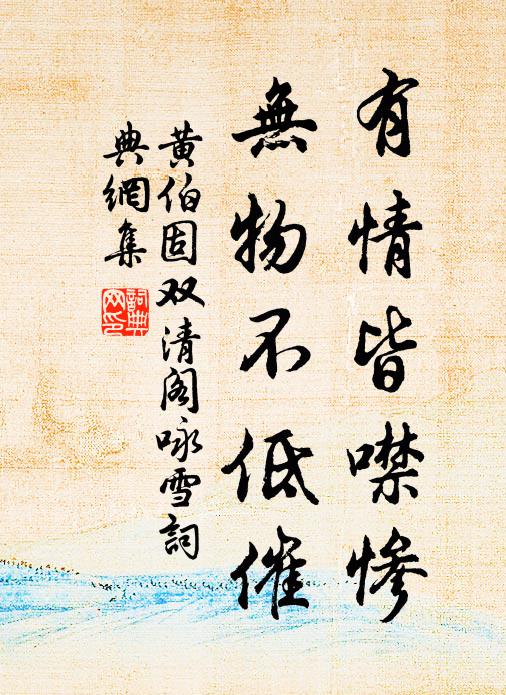 有情皆噤惨
無物不低催
黄伯固双清阁咏雪詞
典網集
詞典網印